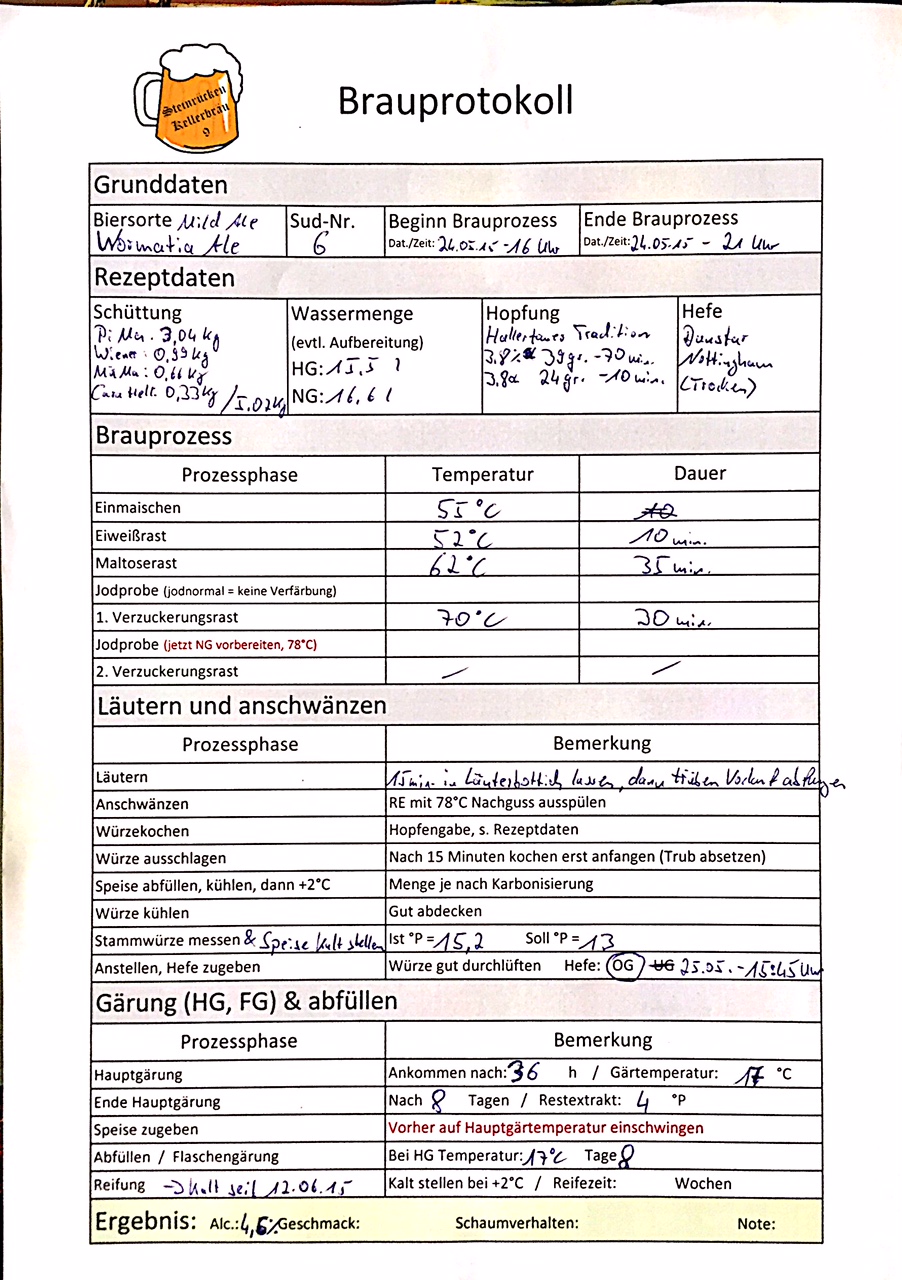 Steinrücken
Kellerbräu
9
Brauprotokoll
Grunddaten
Biersorte Mild Ale
Wormatia Ale
Sud-Nr.
6
Beginn Brauprozess
Dat./Zeit: 24.05.15 - 16 Uhr
Ende Brauprozess
Dat./Zeit: 24.05.15 - 21 Uhr
Rezeptdaten
Schüttung
Pi Ma. 3,04 kg
Wiener: 0,99 kg
MüMa: 0,66 kg
Cara Hell. 0,33 kg / 5.02 kg
Wassermenge
(evtl. Aufbereitung)
HG: 15,5 l
NG: 16,6 l
Hopfung
Hallertauer Tradition
3.8%α 39gr. - 70 min.
3.8α 24gr. - 10 min.
Hefe
Danstar
Nottingham
(Trocken)
Brauprozess
Prozessphase Temperatur Dauer
Einmaischen 55°C 10
Eiweißrast 52°C 10 min.
Maltoserast 62°C 35 min.
Jodprobe (jodnormal = keine Verfärbung)
1. Verzuckerungsrast 70°C 30 min.
Jodprobe (jetzt NG vorbereiten, 78°C)
2. Verzuckerungsrast / /
Läutern und anschwänzen
Prozessphase Bemerkung
Läutern 15 min. in Läuterbottich lassen, dann trüben Vorlauf abfangen
Anschwänzen RE mit 78°C Nachguss ausspülen
Würzekochen Hopfengabe, s. Rezeptdaten
Würze ausschlagen Nach 15 Minuten kochen erst anfangen (Trub absetzen)
Speise abfüllen, kühlen, dann +2°C Menge je nach Karbonisierung
Würze kühlen Gut abdecken
Stammwürze messen & Speise kalt stellen Ist °P = 15,2 Soll °P = 13
Anstellen, Hefe zugeben Würze gut durchlüften Hefe: OG UG 25.05. - 15:45 Uhr
Gärung (HG, FG) & abfüllen
Prozessphase Bemerkung
Hauptgärung Ankommen nach: 36 h / Gärtemperatur: 17 °C
Ende Hauptgärung Nach 8 Tagen / Restextrakt: 4 °P
Speise zugeben Vorher auf Hauptgärtemperatur einschwingen
Abfüllen / Flaschengärung Bei HG Temperatur: 17°C Tage 8
Reifung -> kalt seit 12.06.15 Kalt stellen bei +2°C / Reifezeit: Wochen
Ergebnis: Alc.: 4,6% Geschmack: Schaumverhalten: Note: